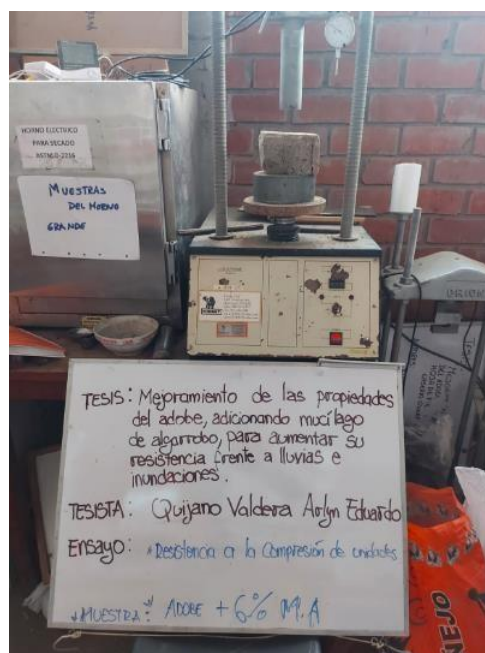 HORNO ELECTRICO
PARA SECADO
MUESTRAS
DEL HORNO
GRANDE
ORION
TESIS: Mejoramiento de las propiedades
del adobe, adicionando mucílago
de algarrobo, para aumentar su
resistencia frente a lluvias e
inundaciones.
TESISTA: Quijano Valdera Arlyn Eduardo
Ensayo: * Resistencia a la Compresión de unidades
* MUESTRA: ADOBE + 6% M.A